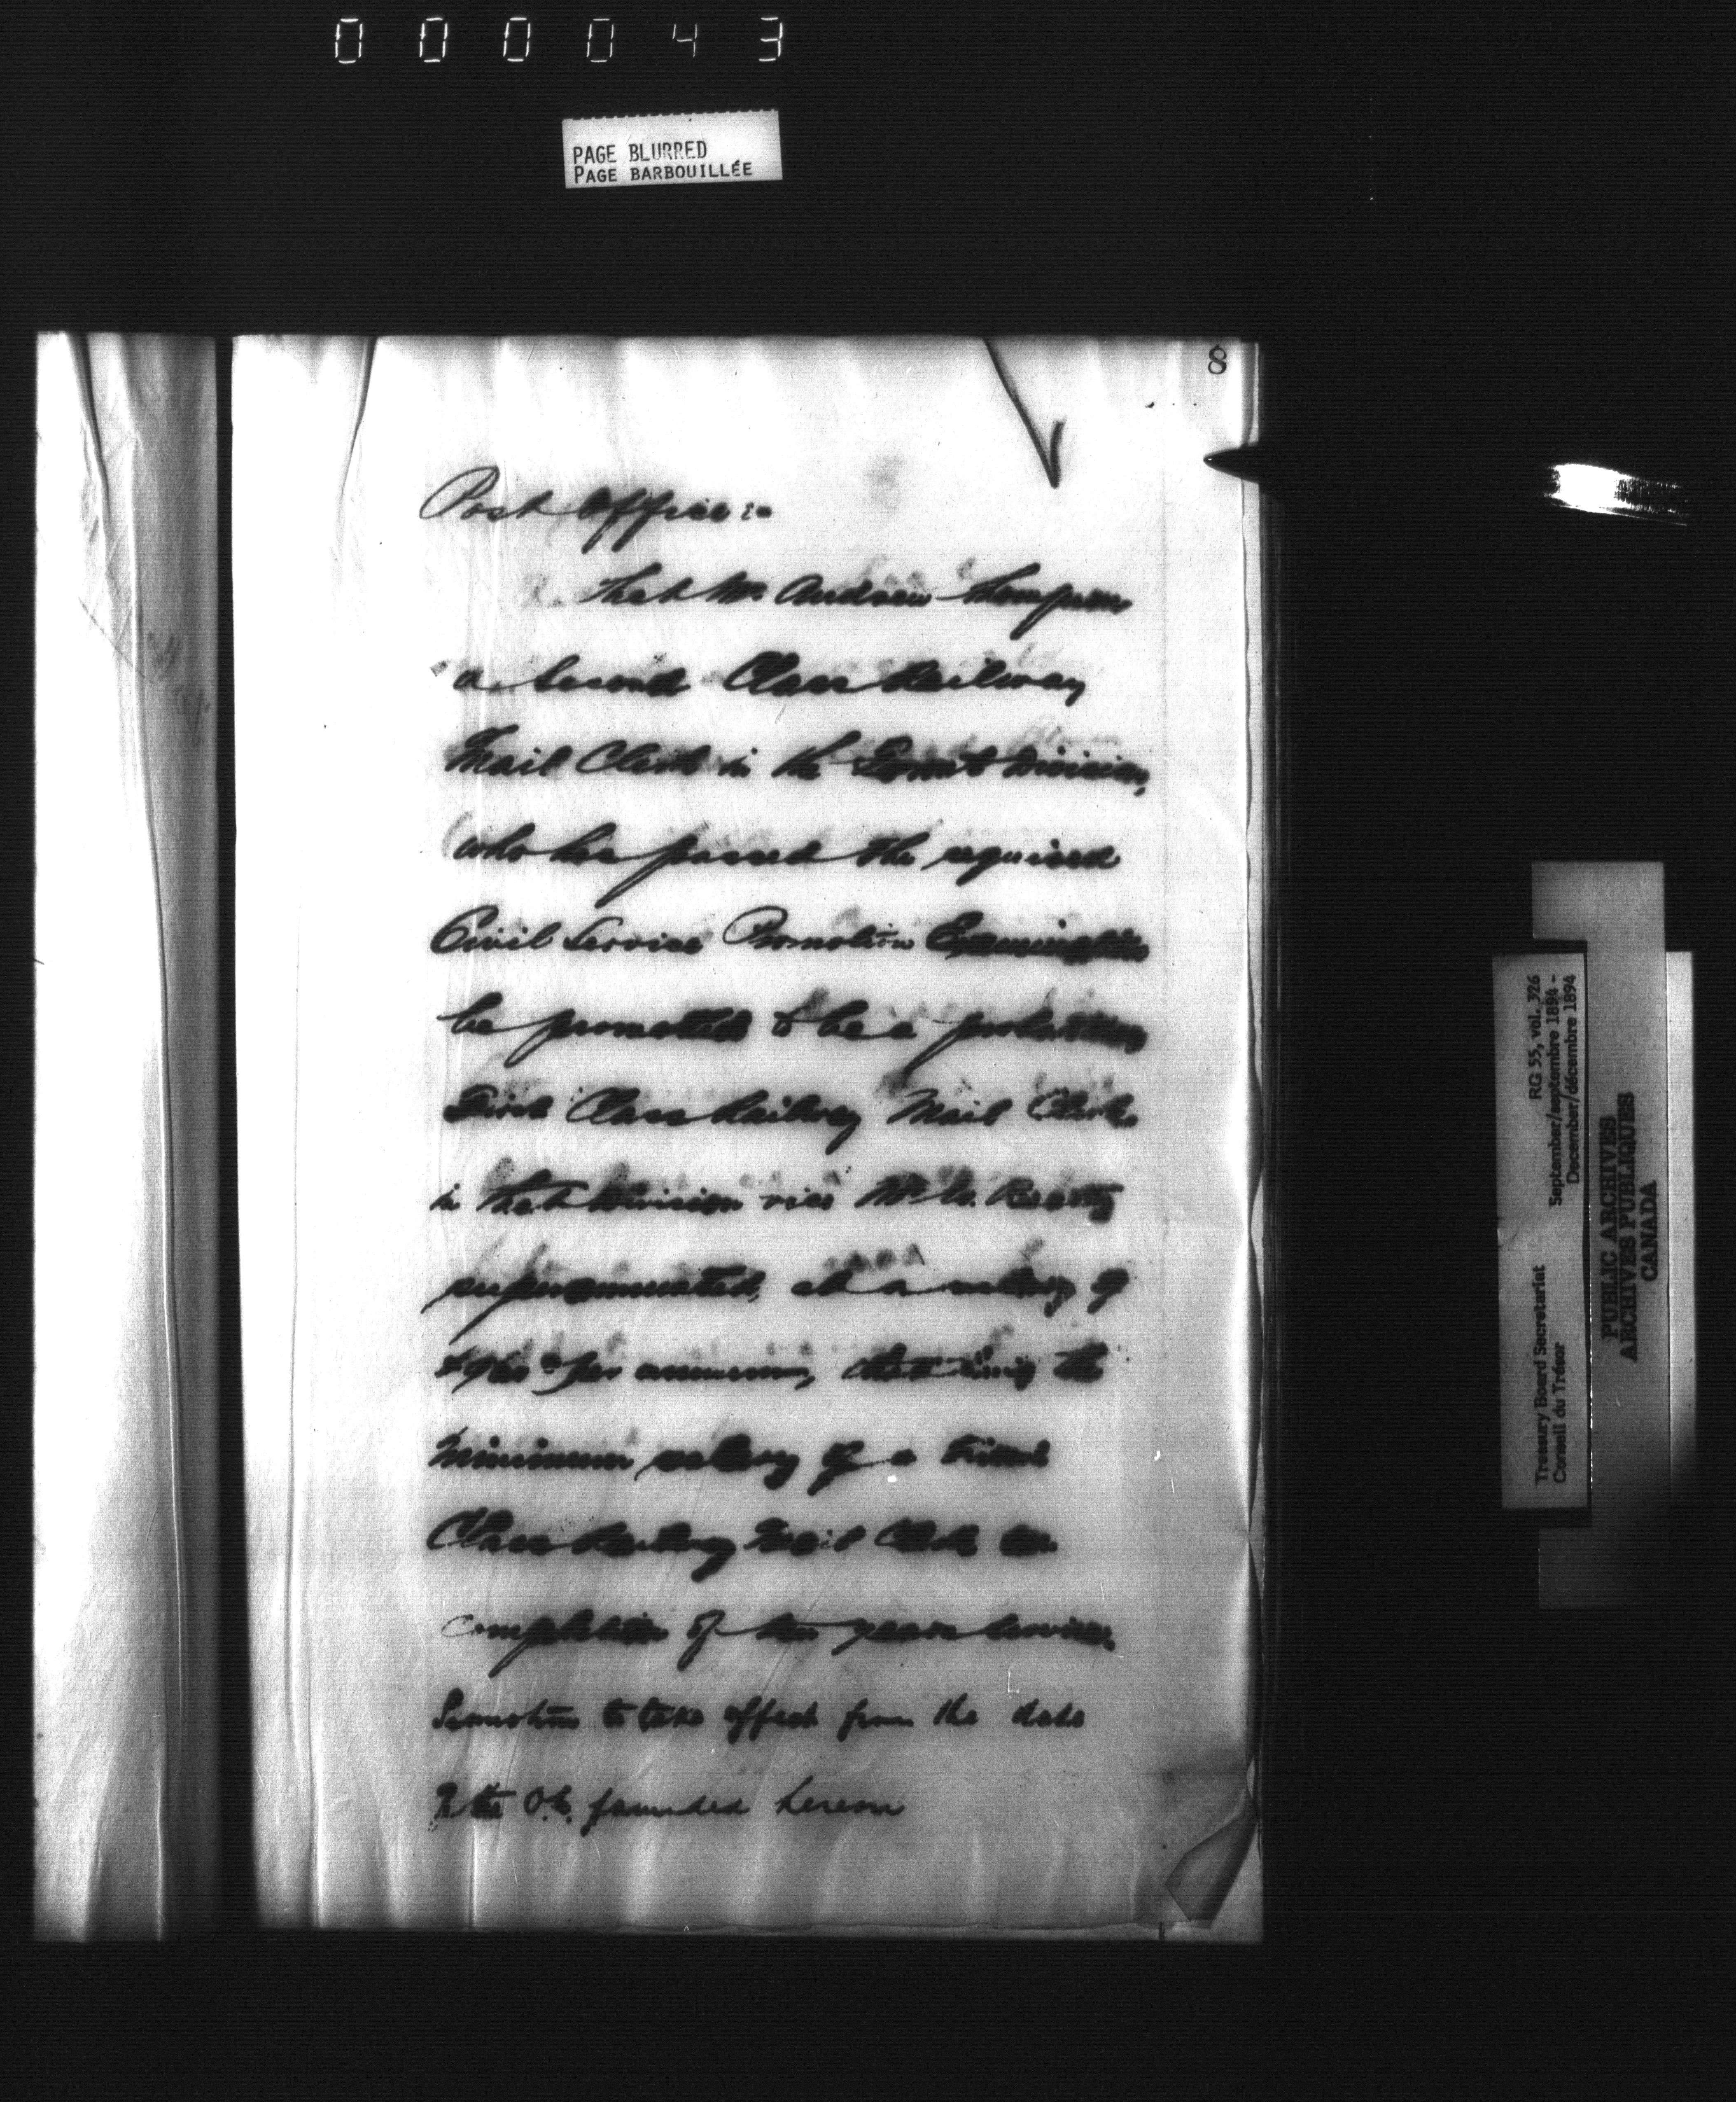 000043
PAGE BLURRED
PAGE BARBOUILLÉE
8
Post Office:-
That Mr. Andrew Thompson
a Second Class Railway
Mail Clerk in the Division,
who has passed the required
Civil Service Promotion Examination
be promoted to be a probationary
First Class Railway Mail Clerk
in that Division vice Mr. Beatty
superannuated, at a salary of
per annum, that being the
minimum salary of a First
Class Railway Mail Clerk on
completion of two years service.
Promotion to take effect from the date
of the O.C. founded hereon
RG 55, vol. 326
September/septembre 1894 -
December/décembre 1894
Treasury Board Secretariat
Conseil du Trésor
PUBLIC ARCHIVES
ARCHIVES PUBLIQUES
CANADA